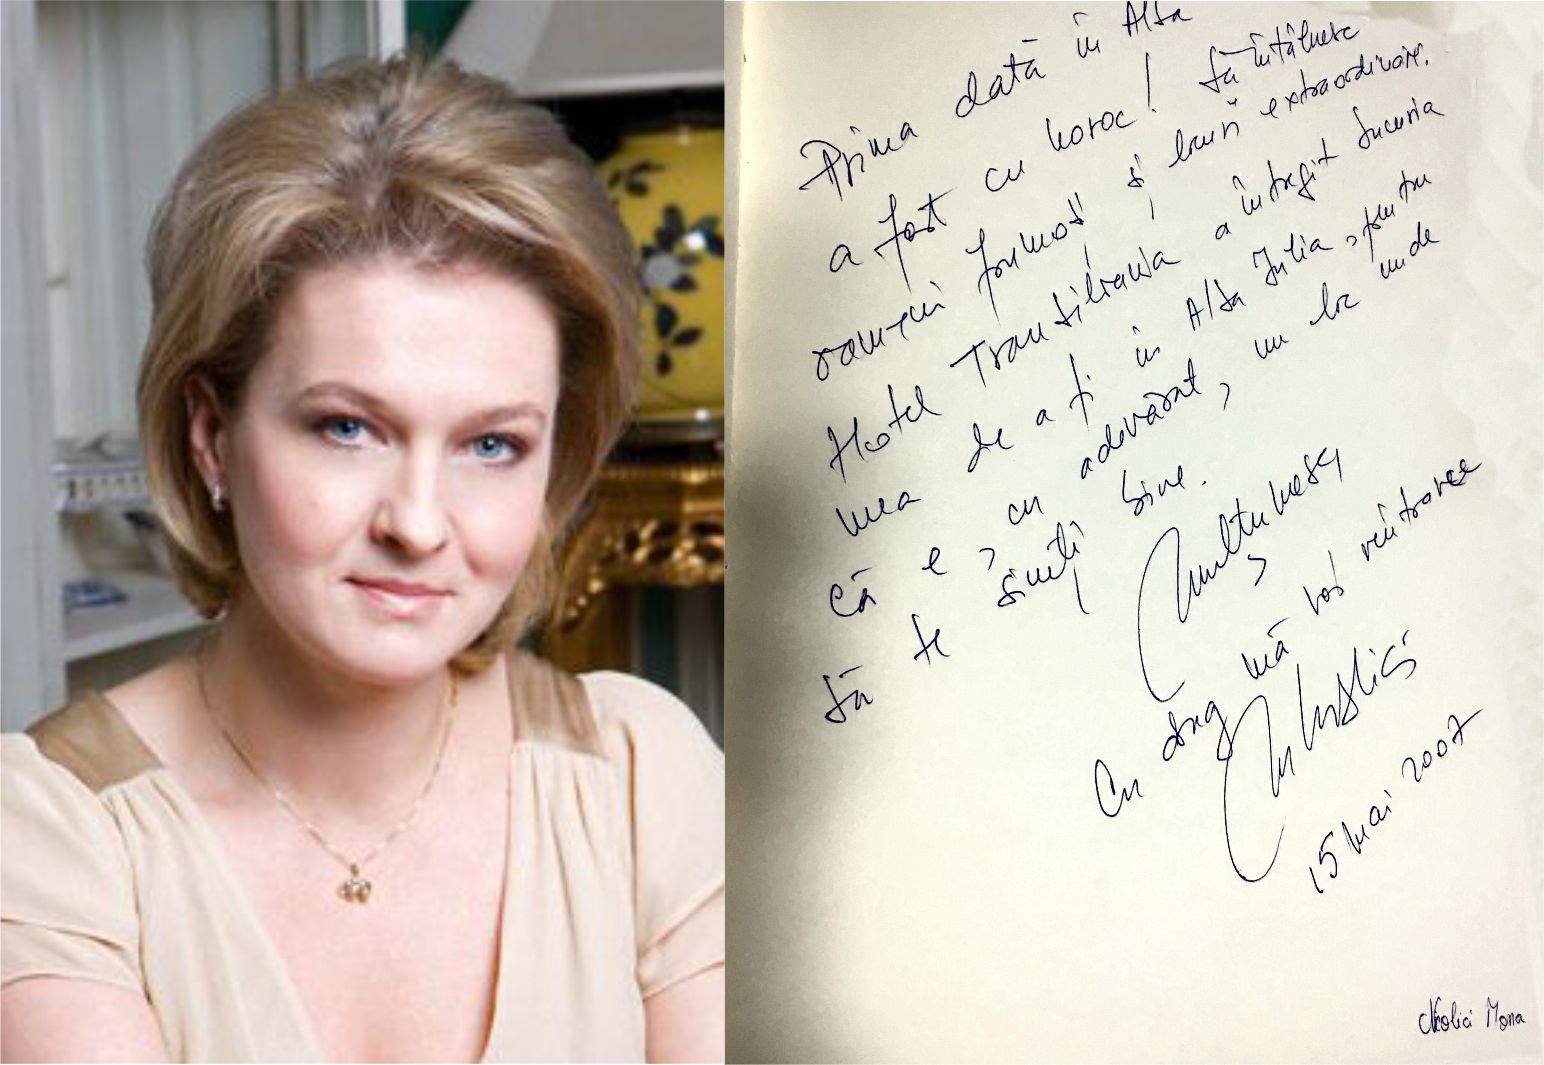 Prima dată în Alba
a fost cu noroc! Să întâlnesc
oameni frumoși și lucruri extraordinare.
Hotel Transilvania a întregit bucuria
mea de a fi în Alba Iulia, pentru
că e, cu adevărat, un loc unde
să te simți bine.
Mulțumesc
Cu drag mă voi reîntoarce
15 mai 2007
Nicolici Mona